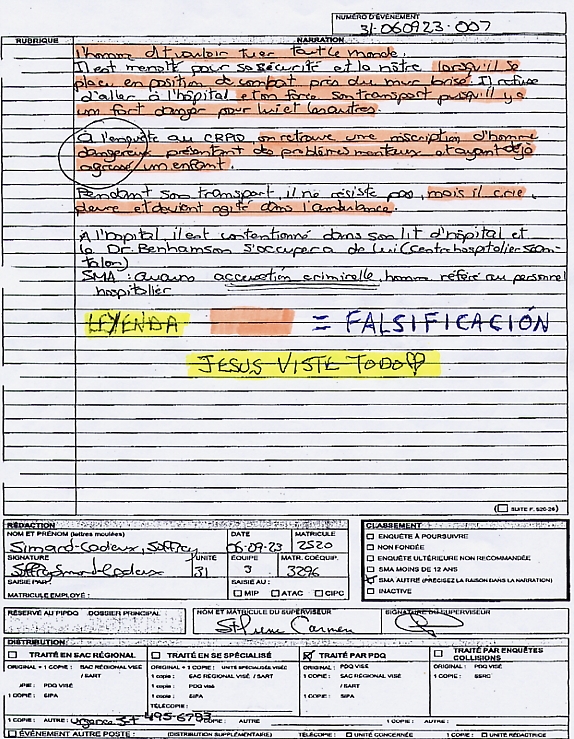 NUMÉRO D'ÉVÉNEMENT
31-060923-007
RUBRIQUE NARRATION
l'homme dit vouloir tuer tout le monde.
Il est menotté pour sa sécurité et la nôtre lorsqu'il se
place en position de combat près du mur brisé. Il refuse
d'aller à l'hôpital et on force son transport puisqu'il y a
un fort danger pour lui et les autres.
À l'enquête au CRPQ on retrouve une inscription d'homme
dangereux présentant des problèmes mentaux et ayant déjà
agressé un enfant.
Pendant son transport, il ne résiste pas, mais il crie,
pleure et devient agité dans l'ambulance.
À l'hopital il est contentionné dans son lit d'hôpital et
le Dr. Benhamson s'occupera de lui (centre hospitalier Jean-
talon)
SMA : aucune accusation criminelle, homme référé au personnel
hospitalier
LEYENDA = FALSIFICACIÓN
JESUS VISTE TODO
(SUITE F. 520-26)
RÉDACTION
NOM ET PRÉNOM (lettres moulées) DATE MATRICULE
Simard-Cadieux, 06-09-23 2520
SIGNATURE UNITÉ ÉQUIPE MATR. COÉQUIP.
31 3 3296
SAISIE PAR: SAISIE AU :
MATRICULE EMPLOYÉ: MIP ATAC CIPC
CLASSEMENT
ENQUÊTE À POURSUIVRE
NON FONDÉE
ENQUÊTE ULTÉRIEURE NON RECOMMANDÉE
SMA MOINS DE 12 ANS
SMA AUTRE (PRÉCISEZ LA RAISON DANS LA NARRATION)
INACTIVE
RÉSERVÉ AU PIPDQ DOSSIER PRINCIPAL
NOM ET MATRICULE DU SUPERVISEUR
SIGNATURE DU SUPERVISEUR
DISTRIBUTION:
TRAITÉ EN SAC RÉGIONAL
ORIGINAL + 1 COPIE : SAC RÉGIONAL VISÉ
/ SART
PDQ VISÉ
1 COPIE : SIPA
1 COPIE : AUTRE : Urgence J-T 495-6793
TRAITÉ EN SE SPÉCIALISÉ
ORIGINAL + 1 COPIE : UNITÉ SPÉCIALISÉE VISÉE
1 COPIE : SAC RÉGIONAL VISÉ / SART
1 COPIE : PDQ VISÉ
1 COPIE : SIPA
TÉLÉCOPIE :
COPIE : AUTRE
TRAITÉ PAR PDQ
ORIGINAL : PDQ VISÉ
1 COPIE : SAC RÉGIONAL VISÉ
/ SART
1 COPIE : SIPA
1 COPIE : AUTRE :
TRAITÉ PAR ENQUÊTES
COLLISIONS
ORIGINAL : PDQ VISÉ
1 COPIE :
ÉVÉNEMENT AUTRE POSTE : (DISTRIBUTION SUPPLÉMENTAIRE) TÉLÉCOPIE : UNITÉ CONCERNÉE 1 COPIE : UNITÉ RÉDACTRICE